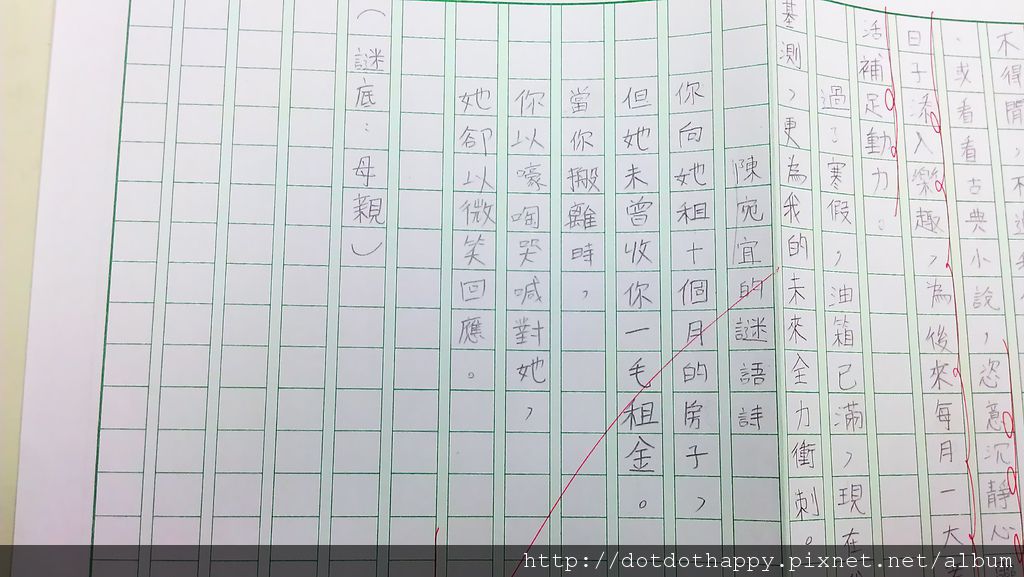 不得閒,不
、或看看古典小說,恣意沉靜心
日子添入樂趣,為後來每月一大
活補足動力。
過了寒假,油箱已滿,現在
基測,更為我的未來全力衝刺。
陳宛宜的謎語詩
你向她租十個月的房子,
但她未曾收你一毛租金。
當你搬離時,
你以嚎啕哭喊對她,
她卻以微笑回應。
(謎底:母親)
http://dotdothappy.pixnet.net/album